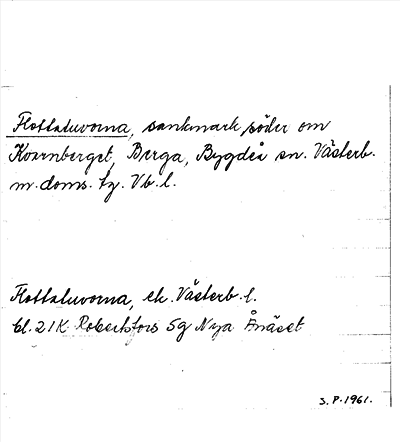 Flottatuvorna, sankmark söder om
Kvarnberget, Berga, Bygdeå sn. Västerb.
m. doms. tg. Vb. l.
Flottatuvorna, ek. Västerb. l.
bl. 21K Robertsfors 5g Nya Ånäset
S. P. 1961.